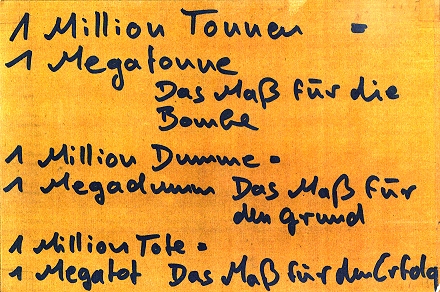 1 Million Tonnen =
1 Megatonne
Das Maß für die
Bombe
1 Million Dumme =
1 Megadumm Das Maß für
den Grund
1 Million Tote =
1 Megatot Das Maß für den Erfolg